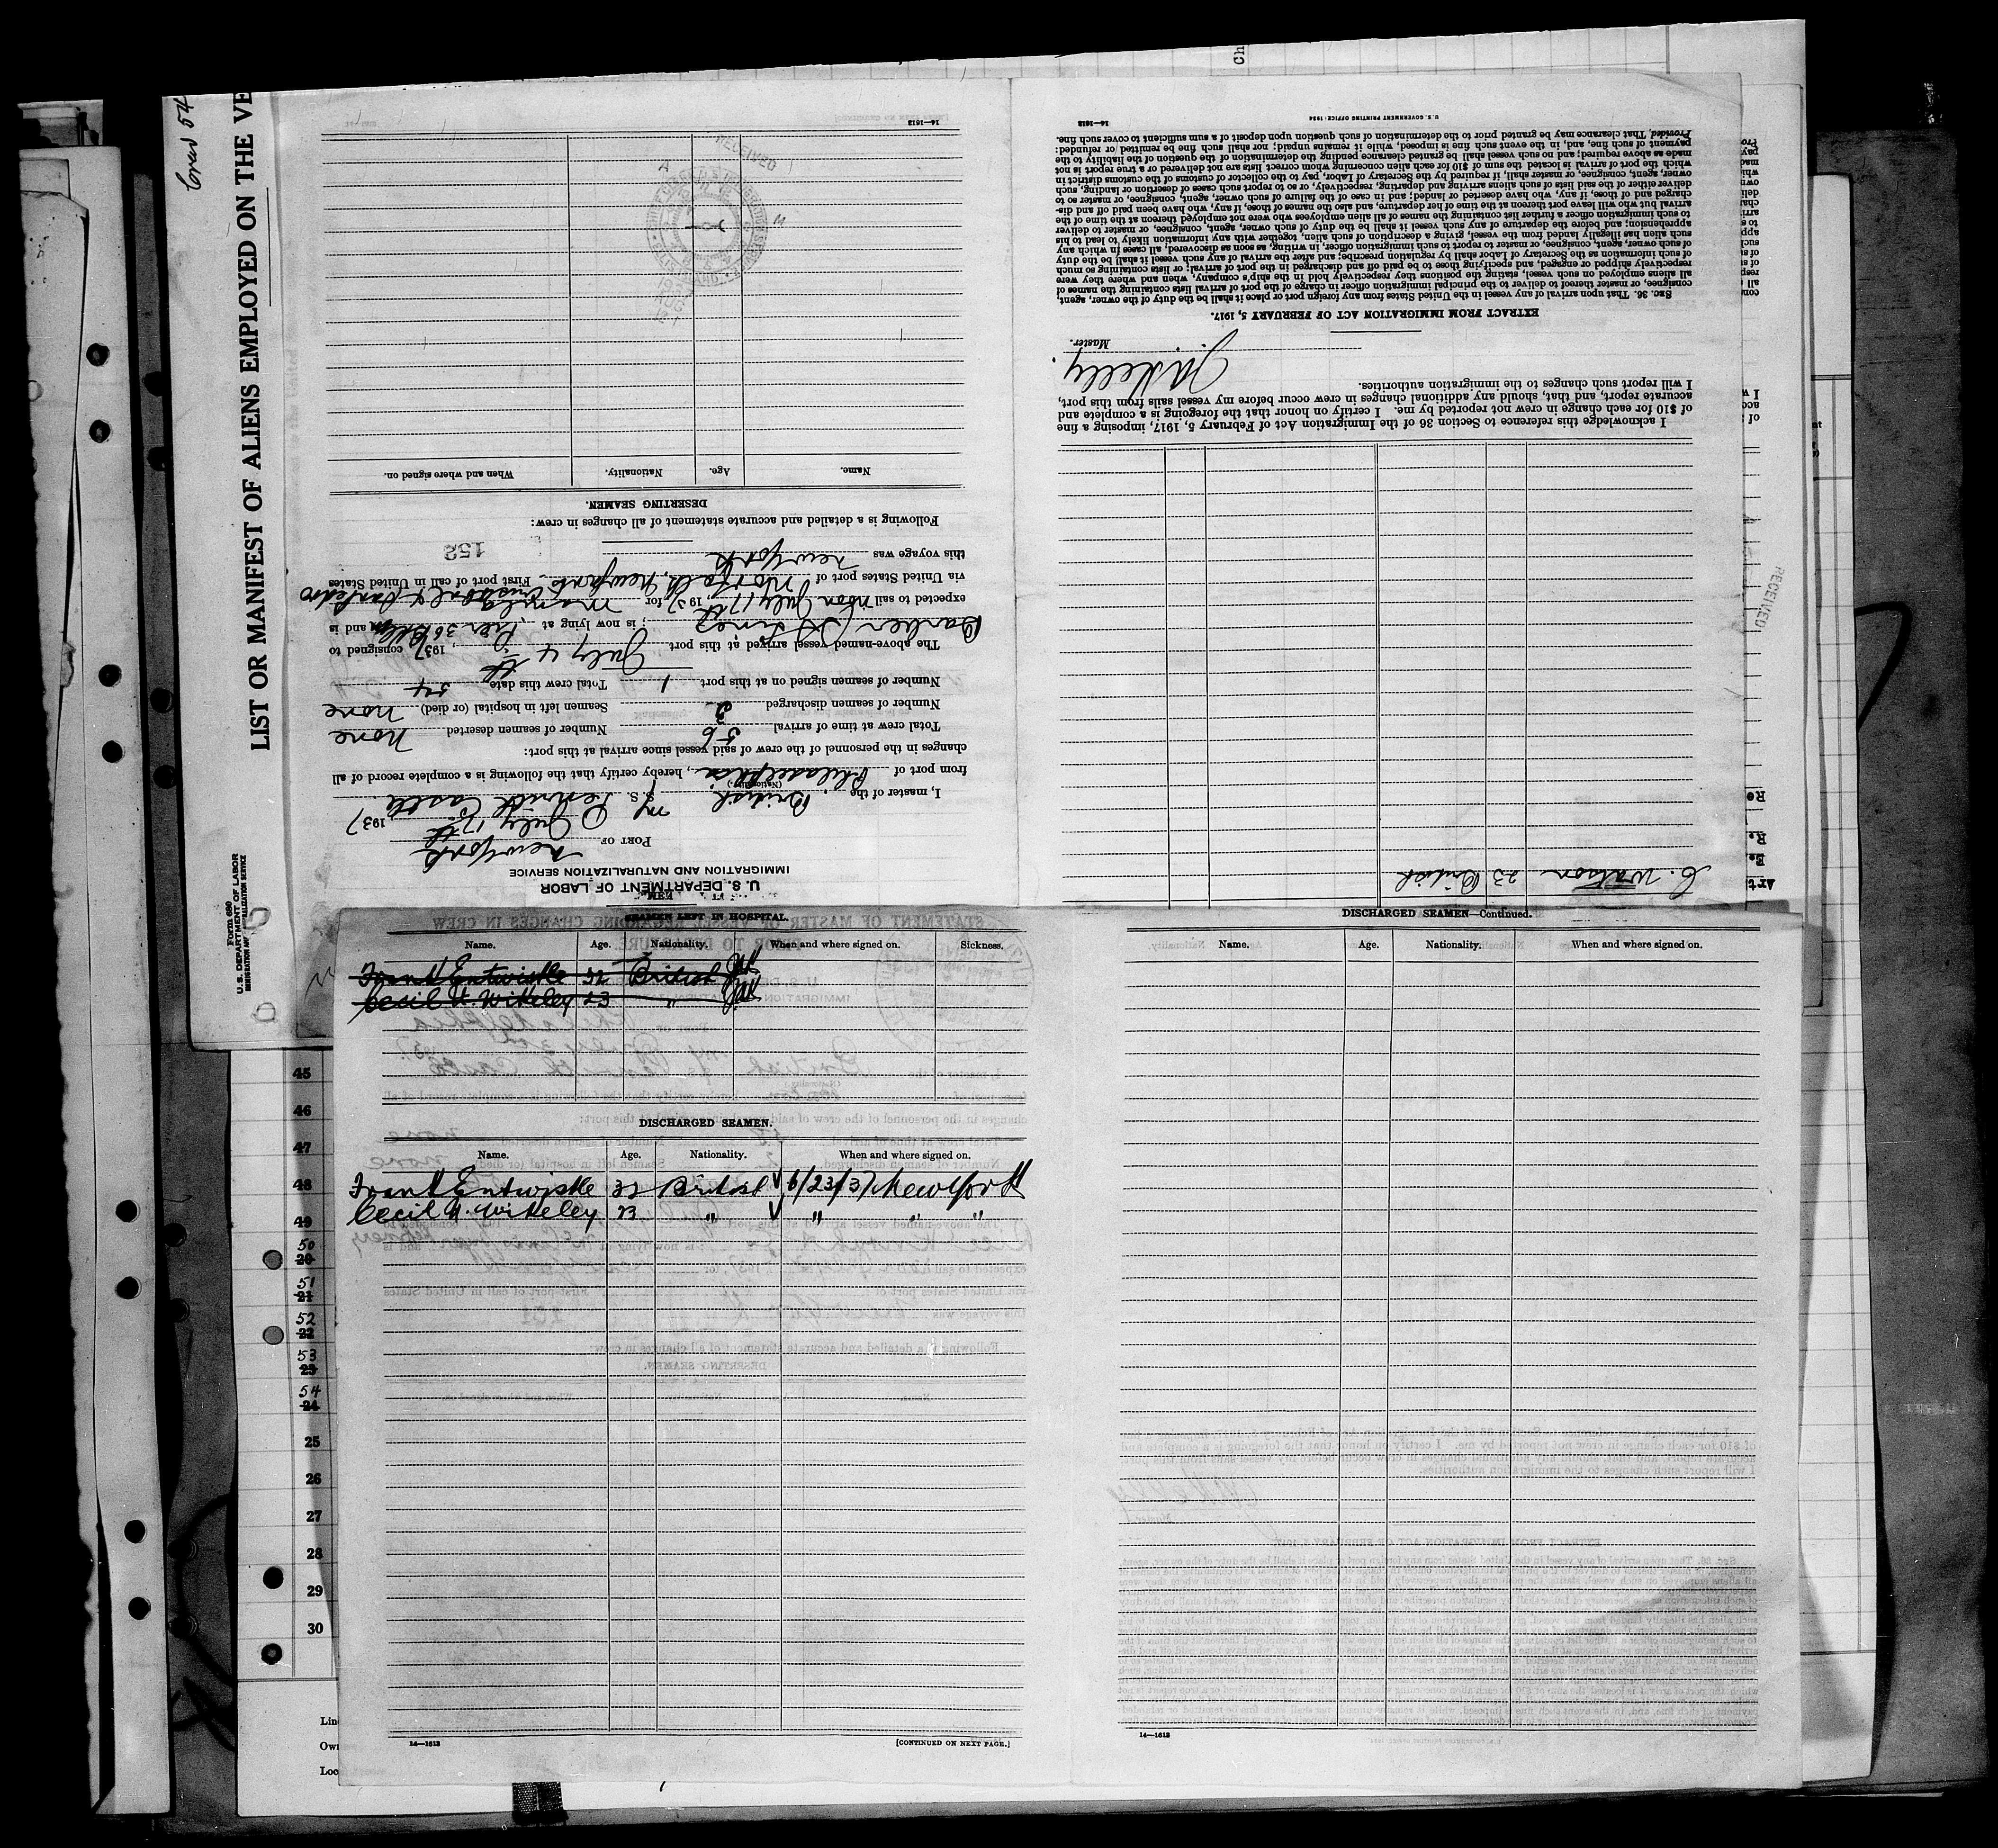 Crew 54
LIST OR MANIFEST OF ALIENS EMPLOYED ON THE VE
Form 680
U. S. DEPARTMENT OF LABOR
IMMIGRATION AND NATURALIZATION SERVICE
Ch
U. S. DEPARTMENT OF LABOR
IMMIGRATION AND NATURALIZATION SERVICE
PORT OF New York
July 17th, 1937
I, master of the British M/S. S. Penrith Castle,
(Nationality)
from port of Philadelphia, hereby certify that the following is a complete record of all
changes in the personnel of the crew of said vessel since arrival at this port:
Total crew at time of arrival 56 Number of seamen deserted none
Number of seamen discharged 2 Seamen left in hospital (or died) none
Number of seamen signed on at this port 1 Total crew this date 54
The above-named vessel arrived at this port July 4th, 1937, consigned to
Barber SS Lines; is now lying at Pier 36 Bklyn and is
expected to sail noon July 17th, 1937 for Manila
via United States port of Norfolk, First port of call in United States
this voyage was New York
152
Following is a detailed and accurate statement of all changes in crew:
DESERTING SEAMEN.
Name. Age. Nationality. When and where signed on.
RECEIVED
14—1613
C. Watson 23 British
I acknowledge this reference to Section 36 of the Immigration Act of February 5, 1917, imposing a fine
of $10 for each change in crew not reported by me. I certify on honor that the foregoing is a complete and
accurate report, and that, should any additional changes in crew occur before my vessel sails from this port,
I will report such changes to the immigration authorities.
Master.
EXTRACT FROM IMMIGRATION ACT OF FEBRUARY 5, 1917.
SEC. 36. That upon arrival of any vessel in the United States from any foreign port or place it shall be the duty of the owner, agent,
consignee, or master thereof to deliver to the principal immigration officer in charge of the port of arrival lists containing the names of
all aliens employed on such vessel, stating the positions they respectively hold in the ship's company, when and where they were
respectively shipped or engaged, and specifying those to be paid off and discharged in the port of arrival; or lists containing so much
of such information as the Secretary of Labor shall by regulation prescribe; and after the arrival of any such vessel it shall be the duty
of such owner, agent, consignee, or master to report to such immigration officer, in writing, as soon as discovered, all cases in which any
such alien has illegally landed from the vessel, giving a description of such alien, together with any information likely to lead to his
apprehension; and before the departure of any such vessel it shall be the duty of such owner, agent, consignee, or master to deliver
to such immigration officer a further list containing the names of all alien employees who were not employed thereon at the time of the
arrival but who will leave port thereon at the time of her departure, and also the names of those, if any, who have been paid off and dis-
charged and of those, if any, who have deserted or landed; and in case of the failure of such owner, agent, consignee, or master so to
deliver either of the said lists of such aliens arriving and departing, respectively, or so to report such cases of desertion or landing, such
owner, agent, consignee, or master, shall, if required by the Secretary of Labor, pay to the collector of customs of the customs district in
which the port of arrival is located the sum of $10 for each alien concerning whom correct lists are not delivered or a true report is not
made as above required; and no such vessel shall be granted clearance pending the determination of the question of the liability to the
payment of such fine, and, in the event such fine is imposed, while it remains unpaid; nor shall such fine be remitted or refunded:
Provided, That clearance may be granted prior to the determination of such question upon deposit of a sum sufficient to cover such fine.
U. S. GOVERNMENT PRINTING OFFICE: 1934
14—1613
RECEIVED
SEAMEN LEFT IN HOSPITAL.
Name. Age. Nationality. When and where signed on. Sickness.
Frank Entwistle 32 British
Cecil H. Wikeley 23 "
DISCHARGED SEAMEN.
Name. Age. Nationality. When and where signed on.
Frank Entwistle 32 British √ 6/23/37 New York
Cecil H. Wikeley 23 " √ " " "
14—1613
[CONTINUED ON NEXT PAGE.]
DISCHARGED SEAMEN—Continued.
Name. Age. Nationality. When and where signed on.
14—1613
45
46
47
48
49
50
20
51
21
52
22
53
23
54
24
25
26
27
28
29
30